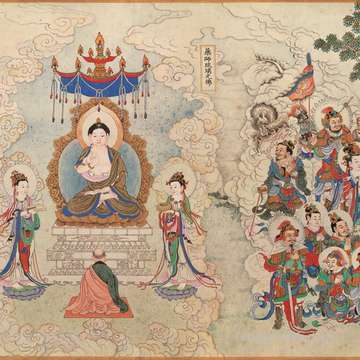 藥師琉璃光佛